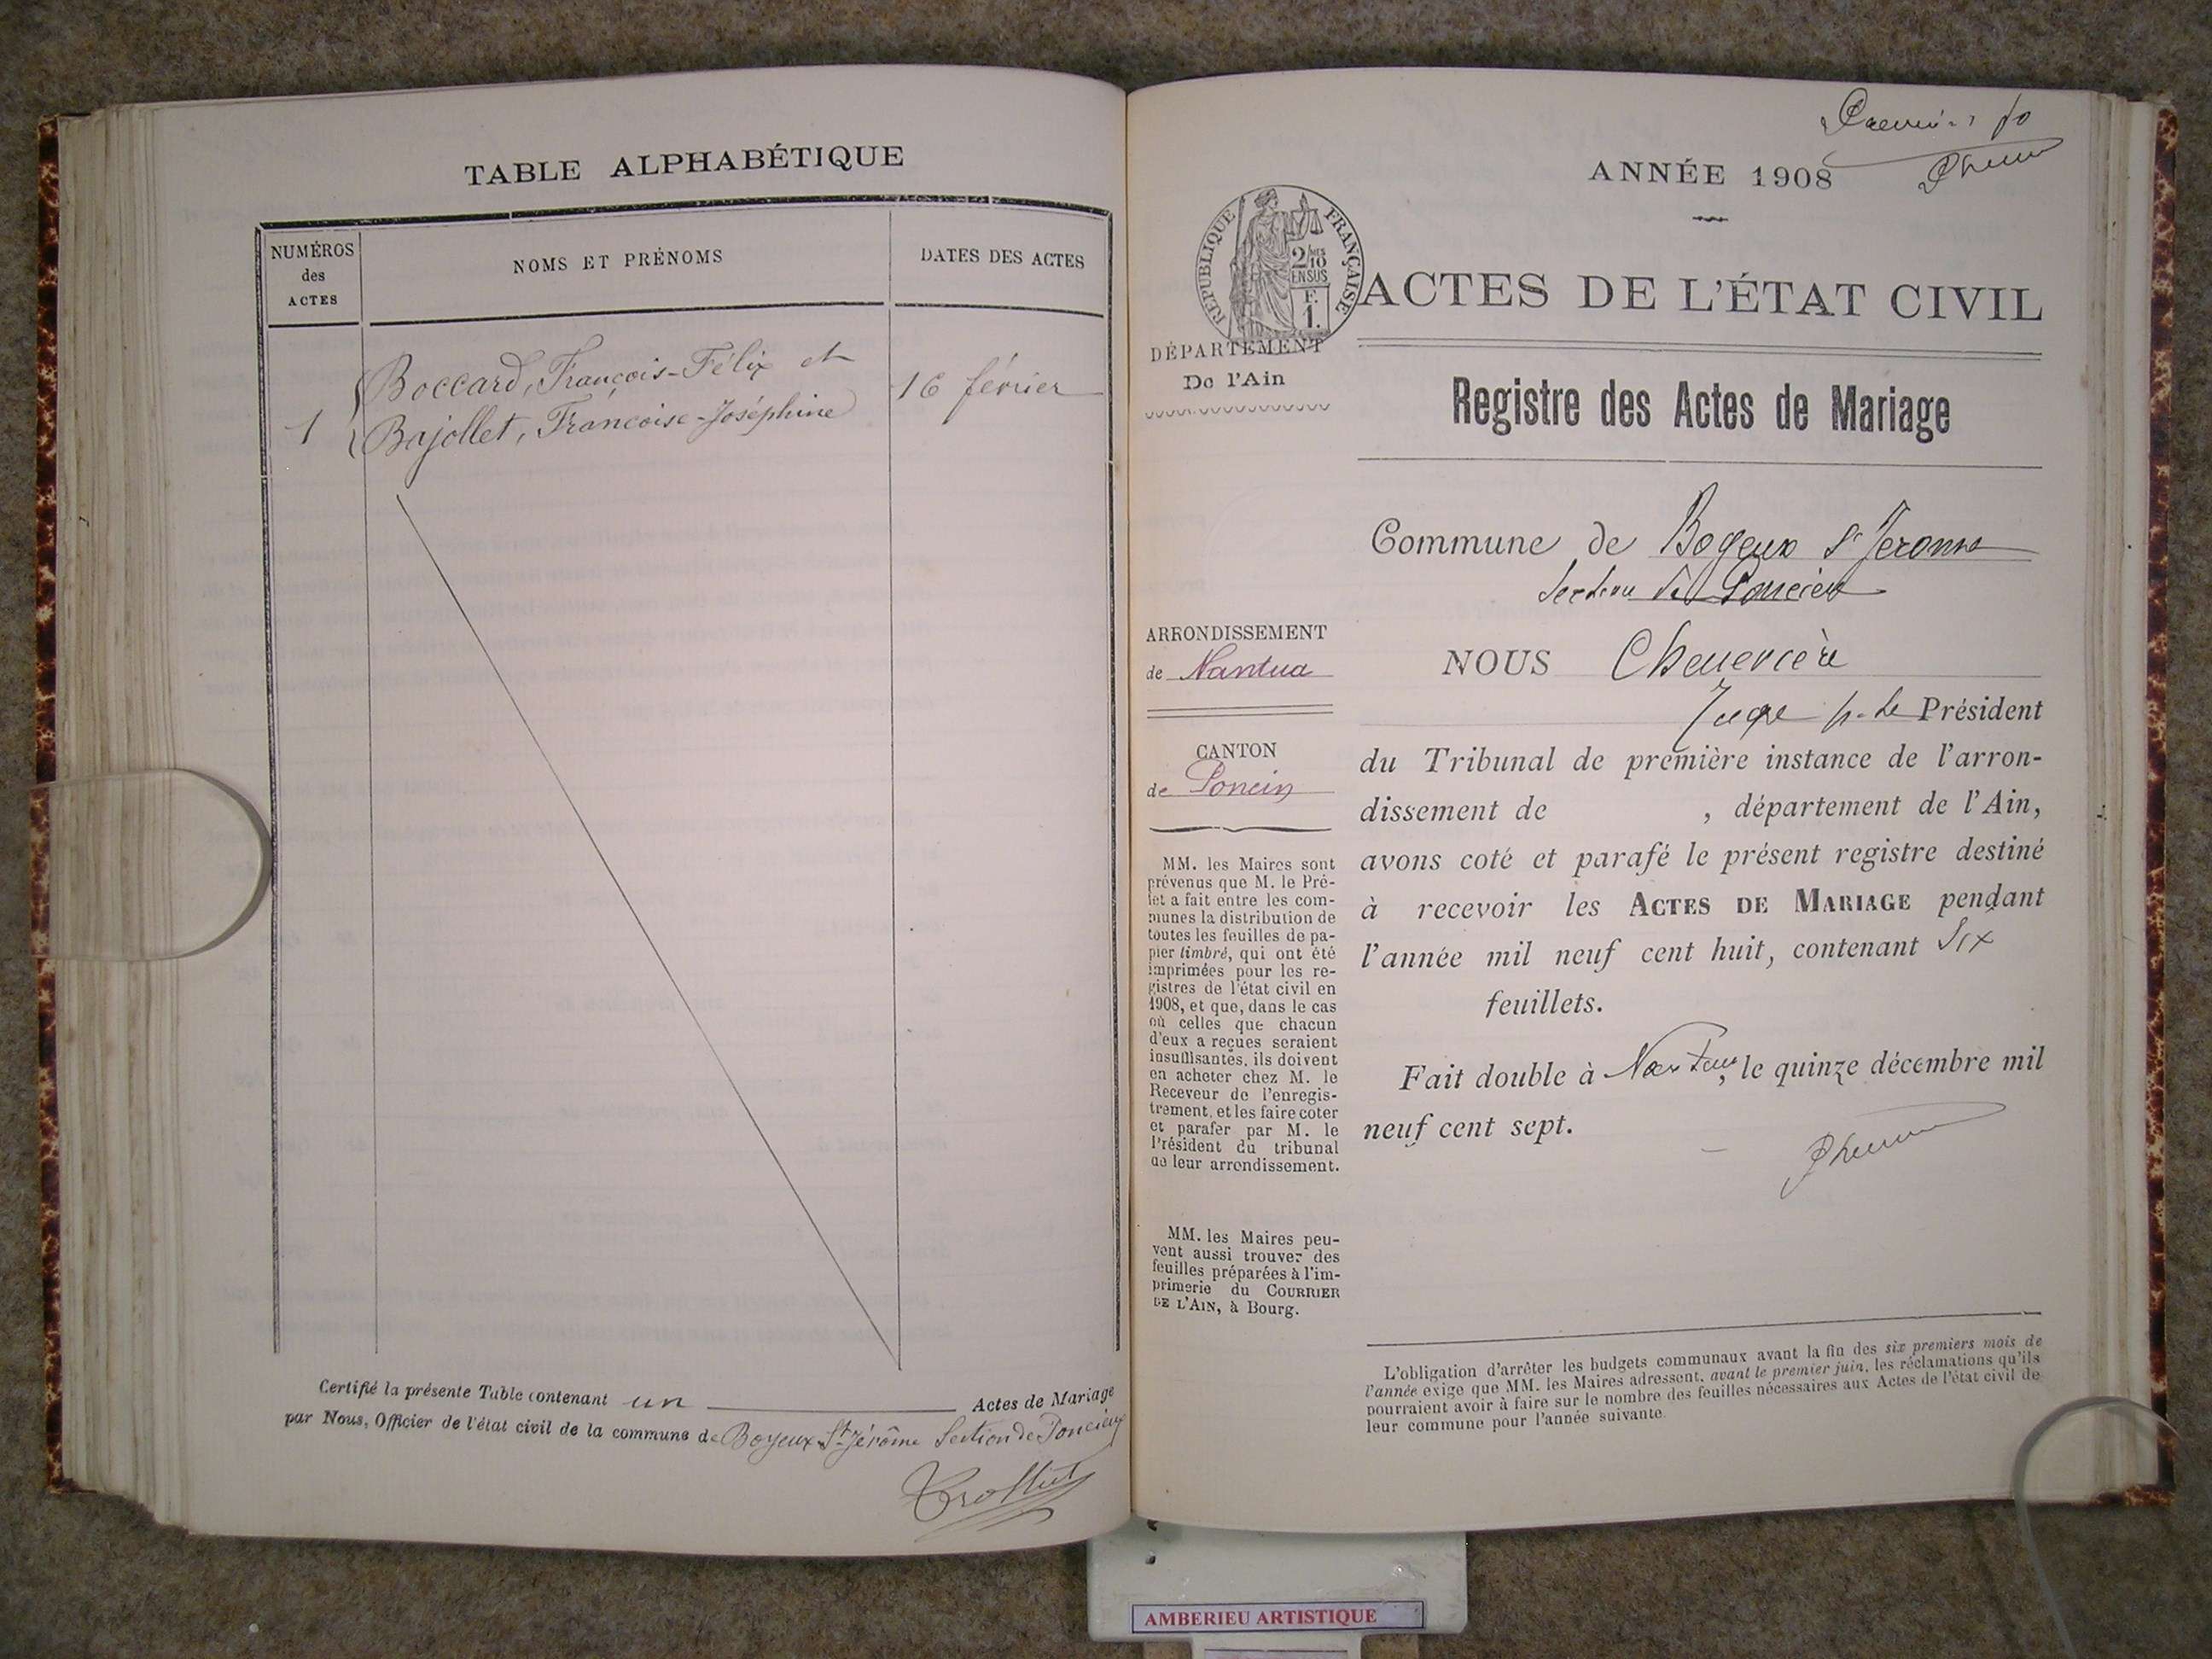 TABLE ALPHABÉTIQUE
NUMÉROS
des
ACTES
NOMS ET PRÉNOMS
DATES DES ACTES
Boccard, François-Félix et
1
Bajollet, Françoise-Joséphine
16 février
Certifié la présente Table contenant un Actes de Mariage
par Nous, Officier de l'état civil de la commune de Boyeux-St-Jérôme Section de Poncieux
ANNÉE 1908
RÉPUBLIQUE FRANÇAISE
2/10
EN SUS
F.
1.
ACTES DE L'ÉTAT CIVIL
DÉPARTEMENT
De l'Ain
Registre des Actes de Mariage
Commune de Boyeux St Jérome
Section de Poncieux
ARRONDISSEMENT
de Nantua
NOUS
Juge p. le Président
CANTON
de Poncin
du Tribunal de première instance de l'arron-
dissement de , département de l'Ain,
avons coté et parafé le présent registre destiné
à recevoir les ACTES DE MARIAGE pendant
l'année mil neuf cent huit, contenant Six
feuillets.
Fait double à Nantua, le quinze décembre mil
neuf cent sept.
MM. les Maires sont
prévenus que M. le Pré-
fet a fait entre les com-
munes la distribution de
toutes les feuilles de pa-
pier timbré, qui ont été
imprimées pour les re-
gistres de l'état civil en
1908, et que, dans le cas
où celles que chacun
d'eux a reçues seraient
insuffisantes, ils doivent
en acheter chez M. le
Receveur de l'enregis-
trement, et les faire coter
et parafer par M. le
Président du tribunal
de leur arrondissement.
MM. les Maires peu-
vent aussi trouver des
feuilles préparées à l'im-
primerie du COURRIER
DE L'AIN, à Bourg.
L'obligation d'arrêter les budgets communaux avant la fin des six premiers mois de
l'année exige que MM. les Maires adressent, avant le premier juin, les réclamations qu'ils
pourraient avoir à faire sur le nombre des feuilles nécessaires aux Actes de l'état civil de
leur commune pour l'année suivante.
AMBERIEU ARTISTIQUE